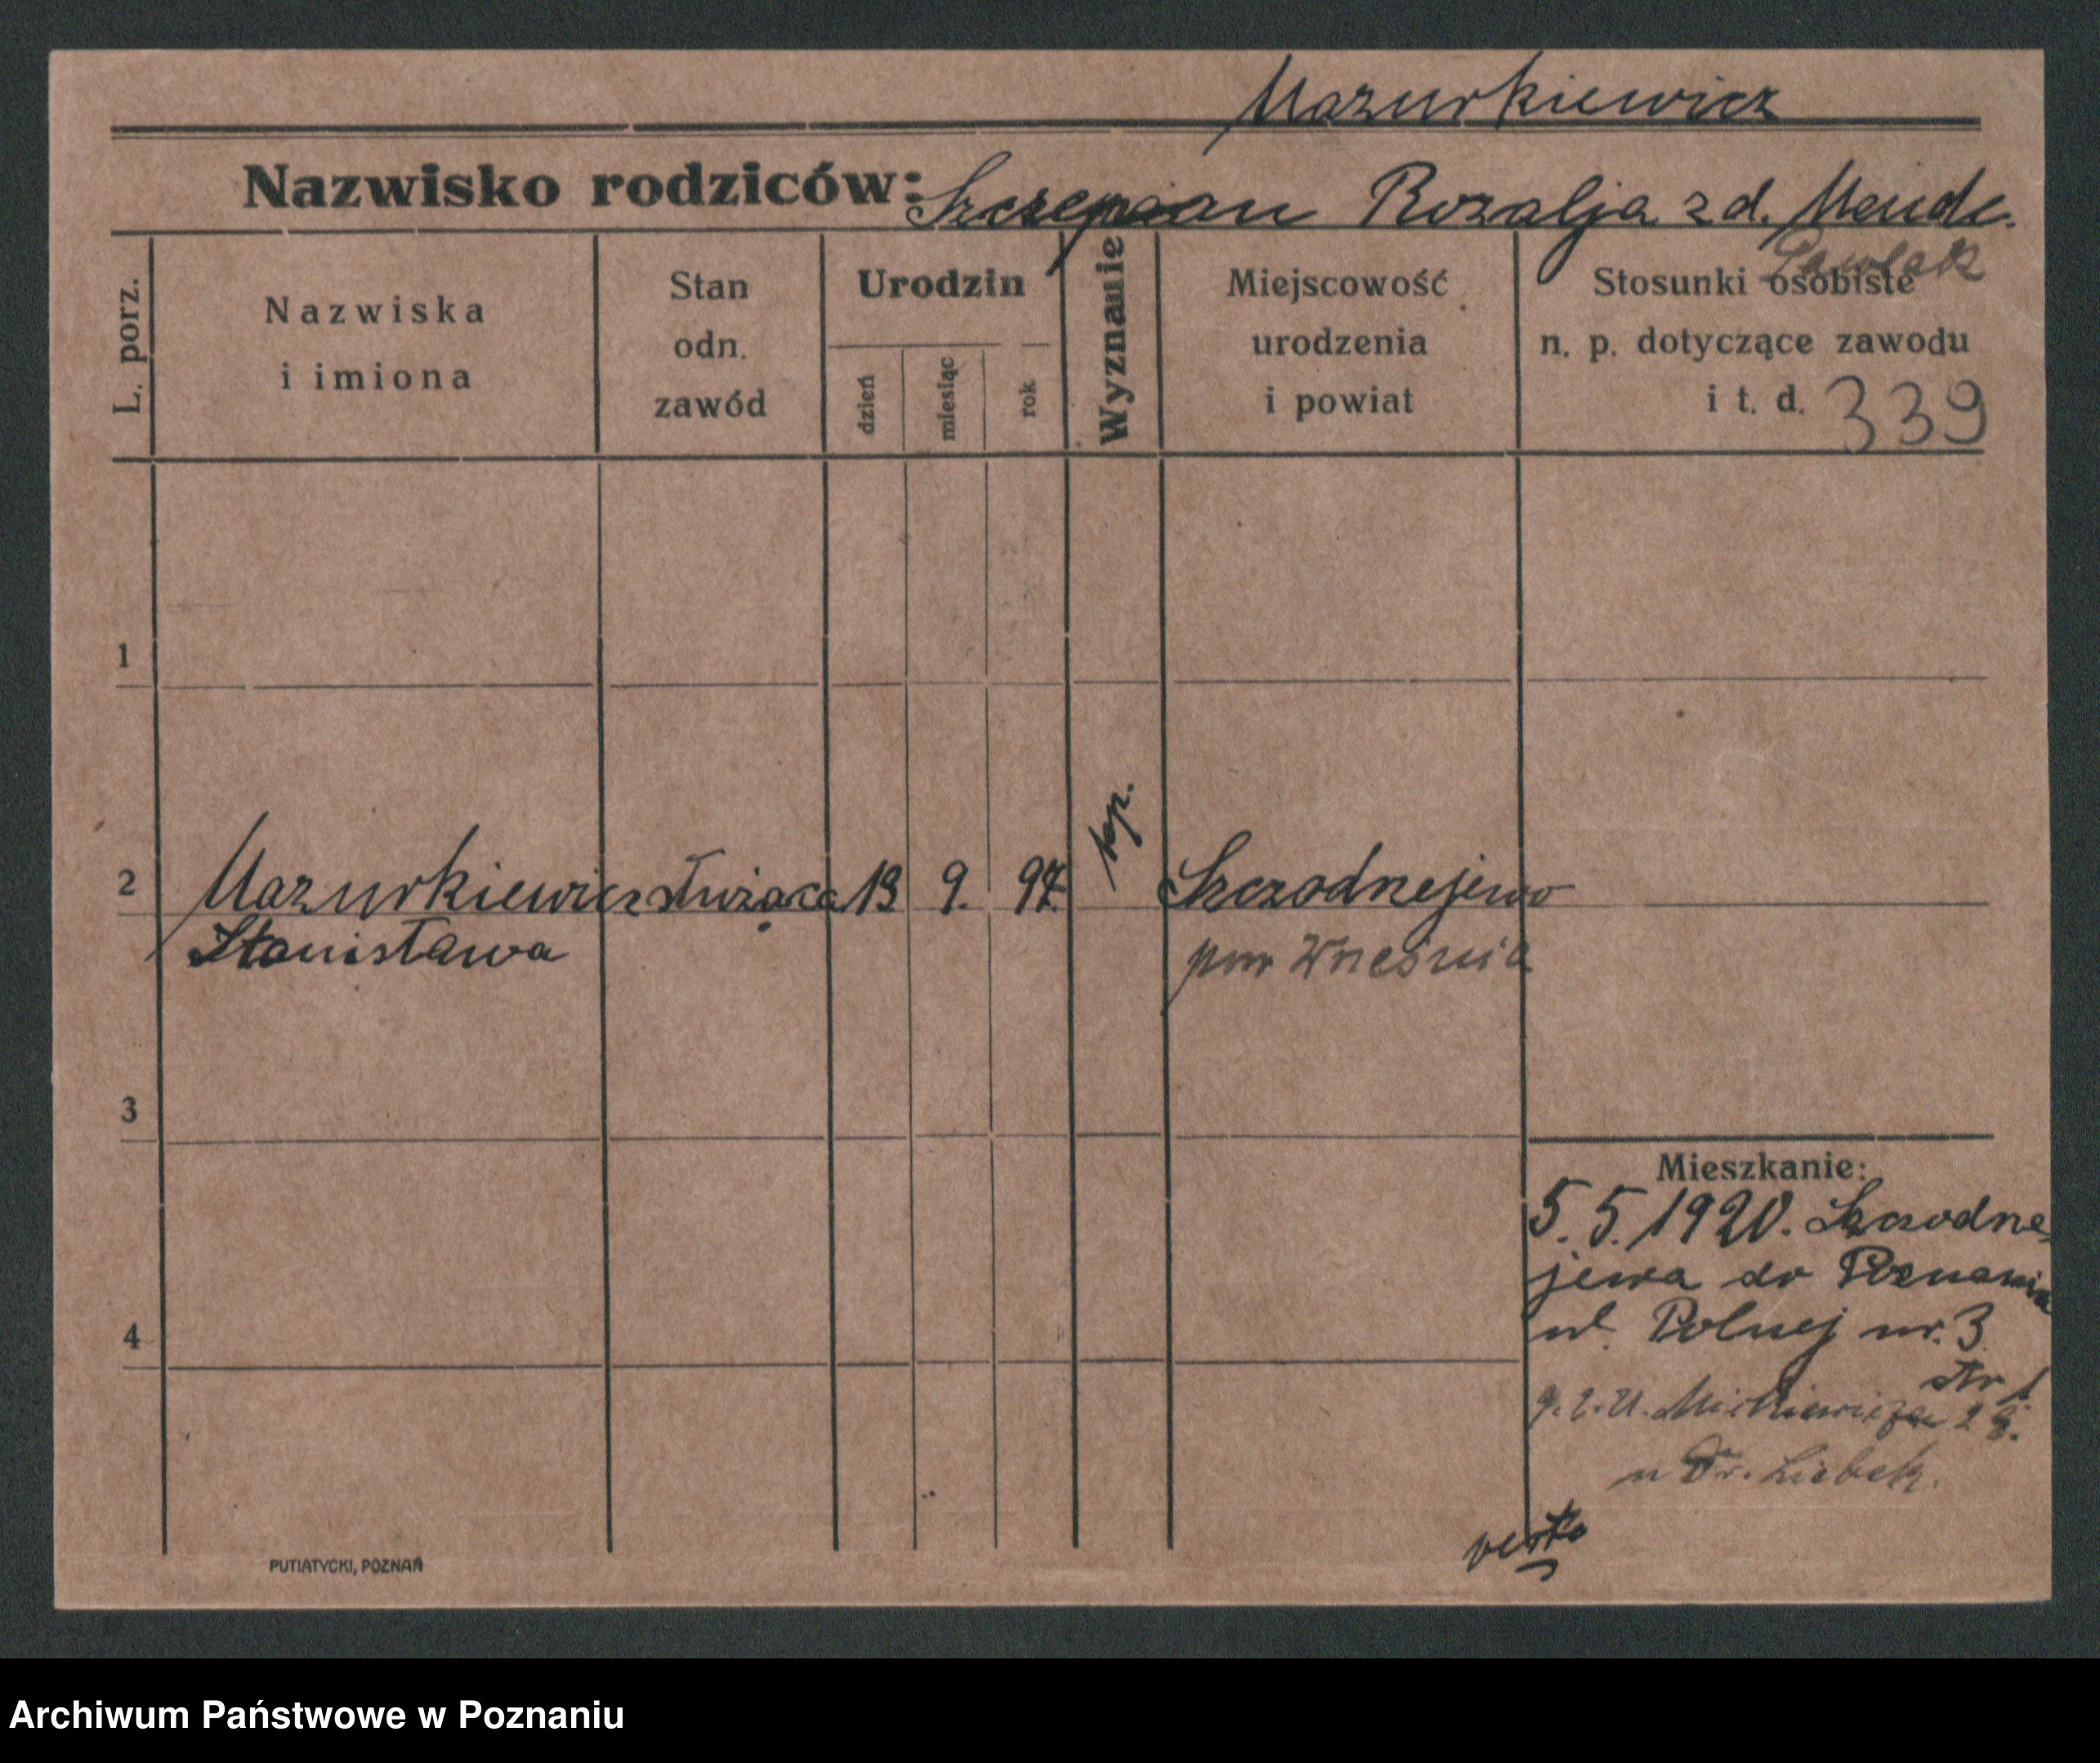 Mazurkiewicz
Nazwisko rodziców: Szczepan Rozalja z d. Mende.
Pawlak
L. porz.
Nazwiska
i imiona
Stan
odn.
zawód
Urodzin
dzień
miesiąc
rok
Wyznanie
Miejscowość
urodzenia
i powiat
Stosunki osobiste
n. p. dotyczące zawodu
i t. d. 339
1
2 Mazurkiewicz służąca 13 9. 97. Szczodrzejewo
Stanisława pow Września
3
Mieszkanie:
5.5.1920. Szczodrze-
jewa do Poznania
ul. Polnej nr. 3
4
str 1
Mickiewicza 28.
u Dr. Liebek.
verto
PUTIATYCKI, POZNAŃ
Archiwum Państwowe w Poznaniu